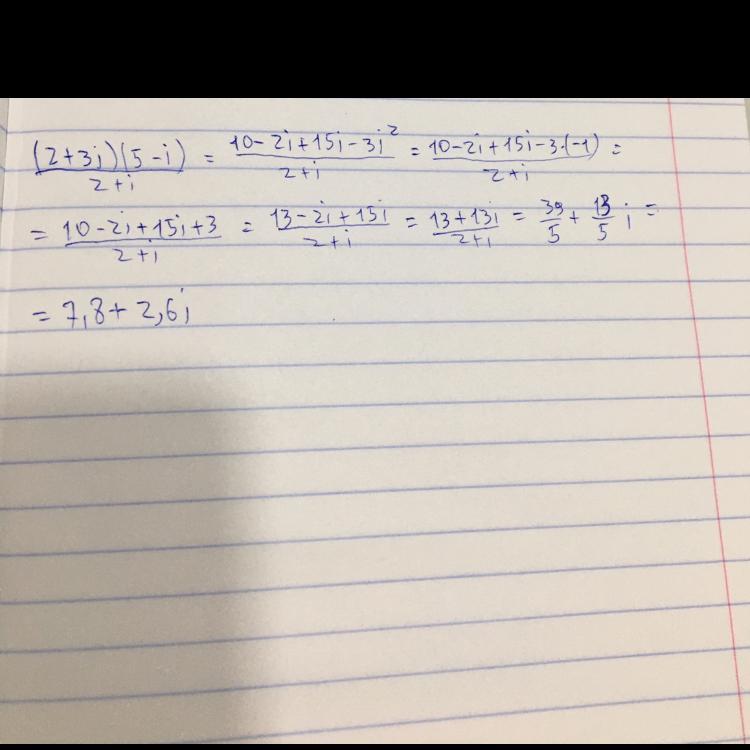 (2+3i)(5-i)/2+i = 10-2i+15i-3i²/2+i = 10-2i+15i-3·(-1)/2+i =
= 10-2i+15i+3/2+i = 13-2i+15i/2+i = 13+13i/2+i = 39/5 + 13/5 i =
= 7,8+2,6i